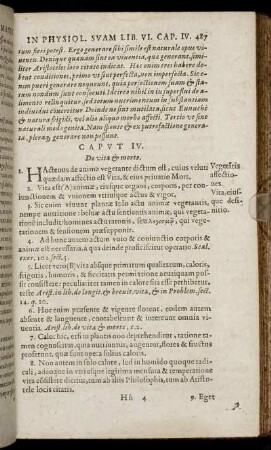 IN PHYSIOL. SVAM LIB. VI. CAP. IV. 487
tum fieri potest. Ergo generare sibi simile est naturale opus vi-
ventis. Denique quænam sint ea viventia, quæ generant simi-
liter Aristoteles loco citato indicat. Hæc enim tres habere de-
bent conditiones, primo ut sint perfecta, non imperfecta. Sic e-
nim pueri generare nequeunt, quia potentiam quidem
generandi nondum sunt consecuti
alimento relinquitur, sed totum nutrimentum in substantiam
individui convertitur. Deinde ne sint mutilata, sicut Eunuchi
natura frigidi, vel alio aliquo morbo affecti. Tertio ut sint
naturali modo genita. Nam sponte & ex putrefactione genera-
ta, pleraque generare non possunt.
CAPVT IV.
De vita & morte.
1. HActenus de anima vegetante dictum est, cuius veluti
quædam affectio est Vita, & eius privatio Mors.
Vegetatis
affectio-
nes.
2. Vita est (A) animæ, eiusque organi, corporis, per con-
iunctionem & unionem utriusque actus & vigor.
Vita, eius-
que defi-
nitio.
3. Sic enim vivunt plantæ solo actu animæ vegetantis,
nempe nutritione: belluæ actu sentientis animæ, qui vegeta-
tionem includit: homines actu rationis, seu qui vege-
tationem & sensionem requirit.
4. Ad hunc autem actum unio & coniunctio corporis &
animæ est necessaria: a qua deinde proficiscitur operatio Scal.
exer. 102. sect. 5.
5. Licet vero (B) vita absque primarum qualitatum, caloris,
frigoris, humoris, & siccitatis permixtione neutiquam possit
consistere: peculiariter tamen in calore sita esse perhibetur,
teste Arist. in lib. de longit. & brevit. vitæ, & in Problem. sect.
14. q. 10.
6. Hoc enim præsente & vigente florent, eodem autem
absente & languente, contabescunt & intereunt omnia vi-
ventia. Arist. lib. de vita & morte, c. 2.
7. Calor hic, etsi in plantis non deprehenditur, ratione tamen
cognoscitur, quia nutriuntur, augentur, flores & fructus
proferunt, quæ sunt opera solius caloris.
8. Non autem in solo calore, sed in humido quoque radi-
cali, adeoque in utriusque legitima mensura & temperatione
vita consistere dicitur, tum ab aliis Philosophis, tum ab Aristo-
tele locis citatis.
Hh 4
9. Eget